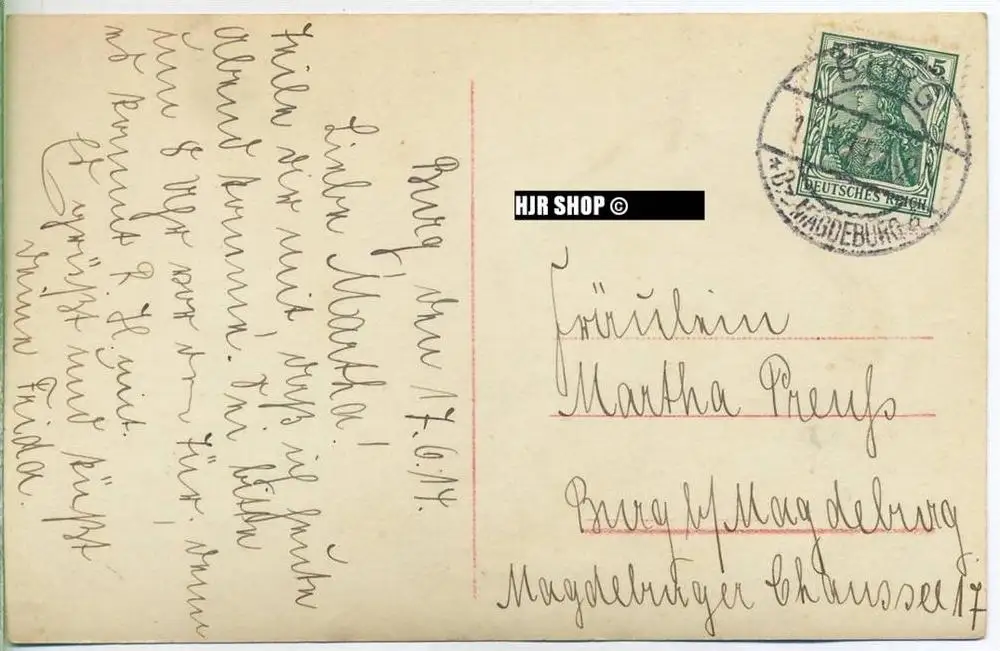 Burg, den 17.6.14.
Liebe Martha!
Teile dir mit, daß ich heute
Abend komme. Sei bitte
um 8 Uhr vor der Tür, denn
es kommt R. H. mit.
Es grüßt und küßt
deine Frida.
5 5
BURG
DEUTSCHES REICH
* Bz. MAGDEBURG
HJR SHOP ©
Fräulein
Martha Preuß
Burg b/Magdeburg
Magdeburger Chaussee 17